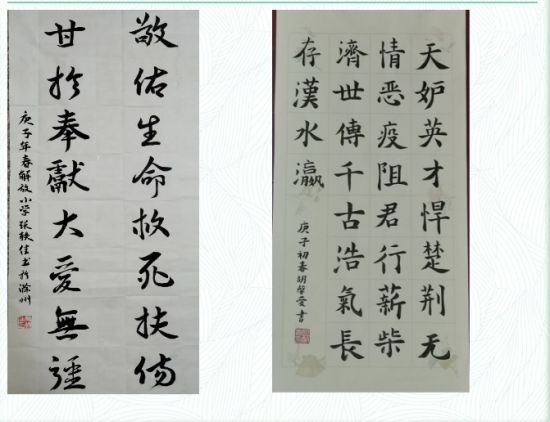 敬佑生命救死扶傷
甘於奉獻大愛無疆
庚子年春解放小学张轶佳书於滁州
天妒英才悍楚荆无
情恶疫阻君行薪柴
濟世傳千古浩氣長
存漢水瀛
庚子初春胡愛書